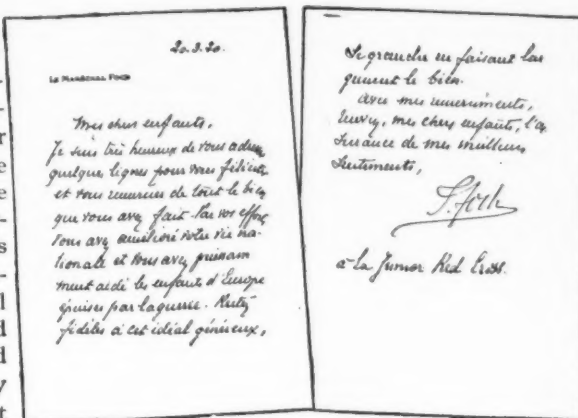 20.3.20.
LE MARÉCHAL FOCH
Mes chers enfants,
Je suis très heureux de vous adresser
quelques lignes pour vous féliciter
et vous remercier de tout le bien
que vous avez fait. Par vos efforts
vous avez amélioré votre vie na-
tionale et vous avez puissam
ment aidé les enfants d'Europe
épuisés par la guerre. Restez
fidèles à cet idéal généreux,
Se grandir en faisant lar
gement le bien.
Avec mes remerciments,
Envoyez, mes chers enfants, l'as
surance de mes meilleurs
Sentiments,
F. Foch
à la Junior Red Cross.